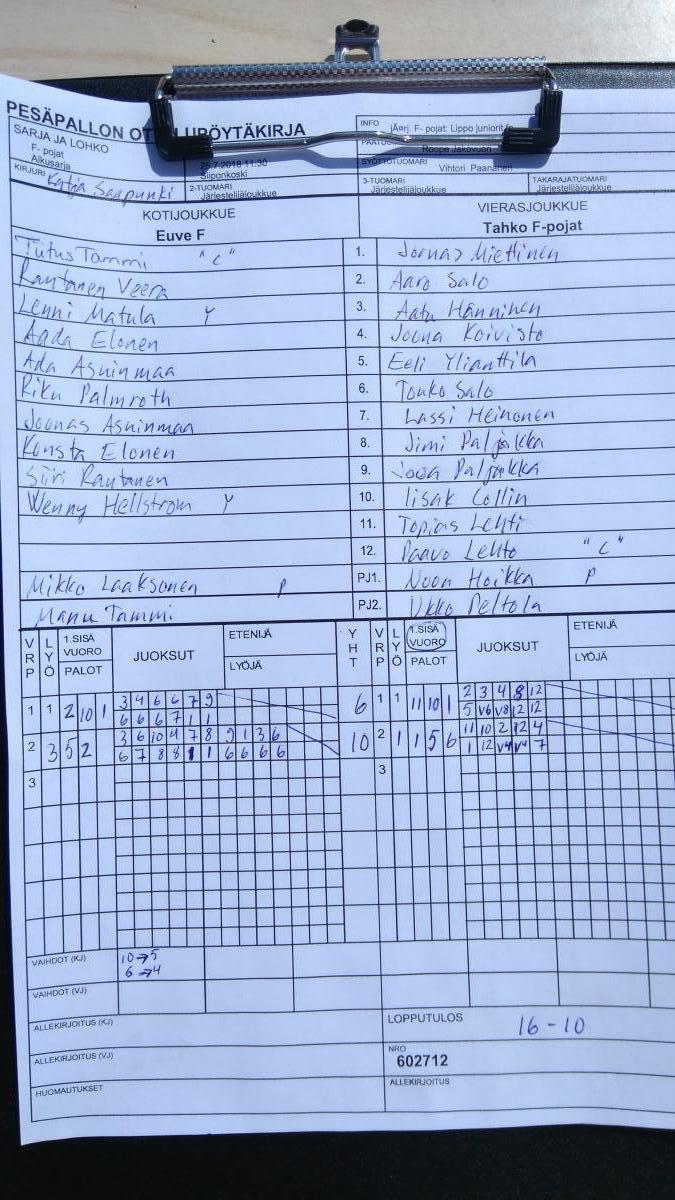 PESÄPALLON OT LUPÖYTÄKIRJA
SARJA JA LOHKO
F- pojat
Alkusarja
25.7.2018 11:30
Siiponkoski
INFO
järj. F- pojat: Lippo juniorit
Roope Jakovuori
SYÖTTÖTUOMARI
Vihtori Paananen
KIRJURI Katja Saapunki
2-TUOMARI
Järjestelijäjoukkue
3-TUOMARI
Järjestelijäjoukkue
TAKARAJATUOMARI
Järjestelijäjoukkue
KOTIJOUKKUE
Euve F
VIERASJOUKKUE
Tahko F-pojat
Titus Tammi "C" 1. Joonas Miettinen
Rautanen Veera 2. Aaro Salo
Lenni Matula Y 3. Aatu Hänninen
Aada Elonen 4. Joona Koivisto
Ada Asuinmaa 5. Eeli Ylianttila
Riku Palmroth 6. Touko Salo
Joonas Asuinmaa 7. Lassi Heinonen
Konsta Elonen 8. Jimi Paljakka
Siiri Rautanen 9. Jooa Paljakka
Wenny Hellström Y 10. Iisak Collin
11. Topias Lehti
12. Paavo Lehto "C"
Mikko Laaksonen P PJ1. Noora Hoikka P
Manu Tammi PJ2. Ukko Peltola
VRP LYÖ 1.SISÄ VUORO PALOT JUOKSUT ETENIJÄ LYÖJÄ YHT VRP LYÖ 1.SISÄ VUORO PALOT JUOKSUT ETENIJÄ LYÖJÄ
1 1 2 10 1 3 4 6 6 7 9 6 1 1 11 10 1 2 3 4 8 12
6 6 6 7 1 1 5 V6 V8 12 12
2 3 5 2 3 6 10 4 7 8 9 1 3 6 10 2 1 1 5 6 11 10 2 12 4
6 7 8 8 1 1 6 6 6 6 1 12 V4 V4 7
3 3
VAIHDOT (KJ) 10→5
6→4
VAIHDOT (VJ)
ALLEKIRJOITUS (KJ)
LOPPUTULOS 16-10
ALLEKIRJOITUS (VJ)
NRO
602712
HUOMAUTUKSET
ALLEKIRJOITUS